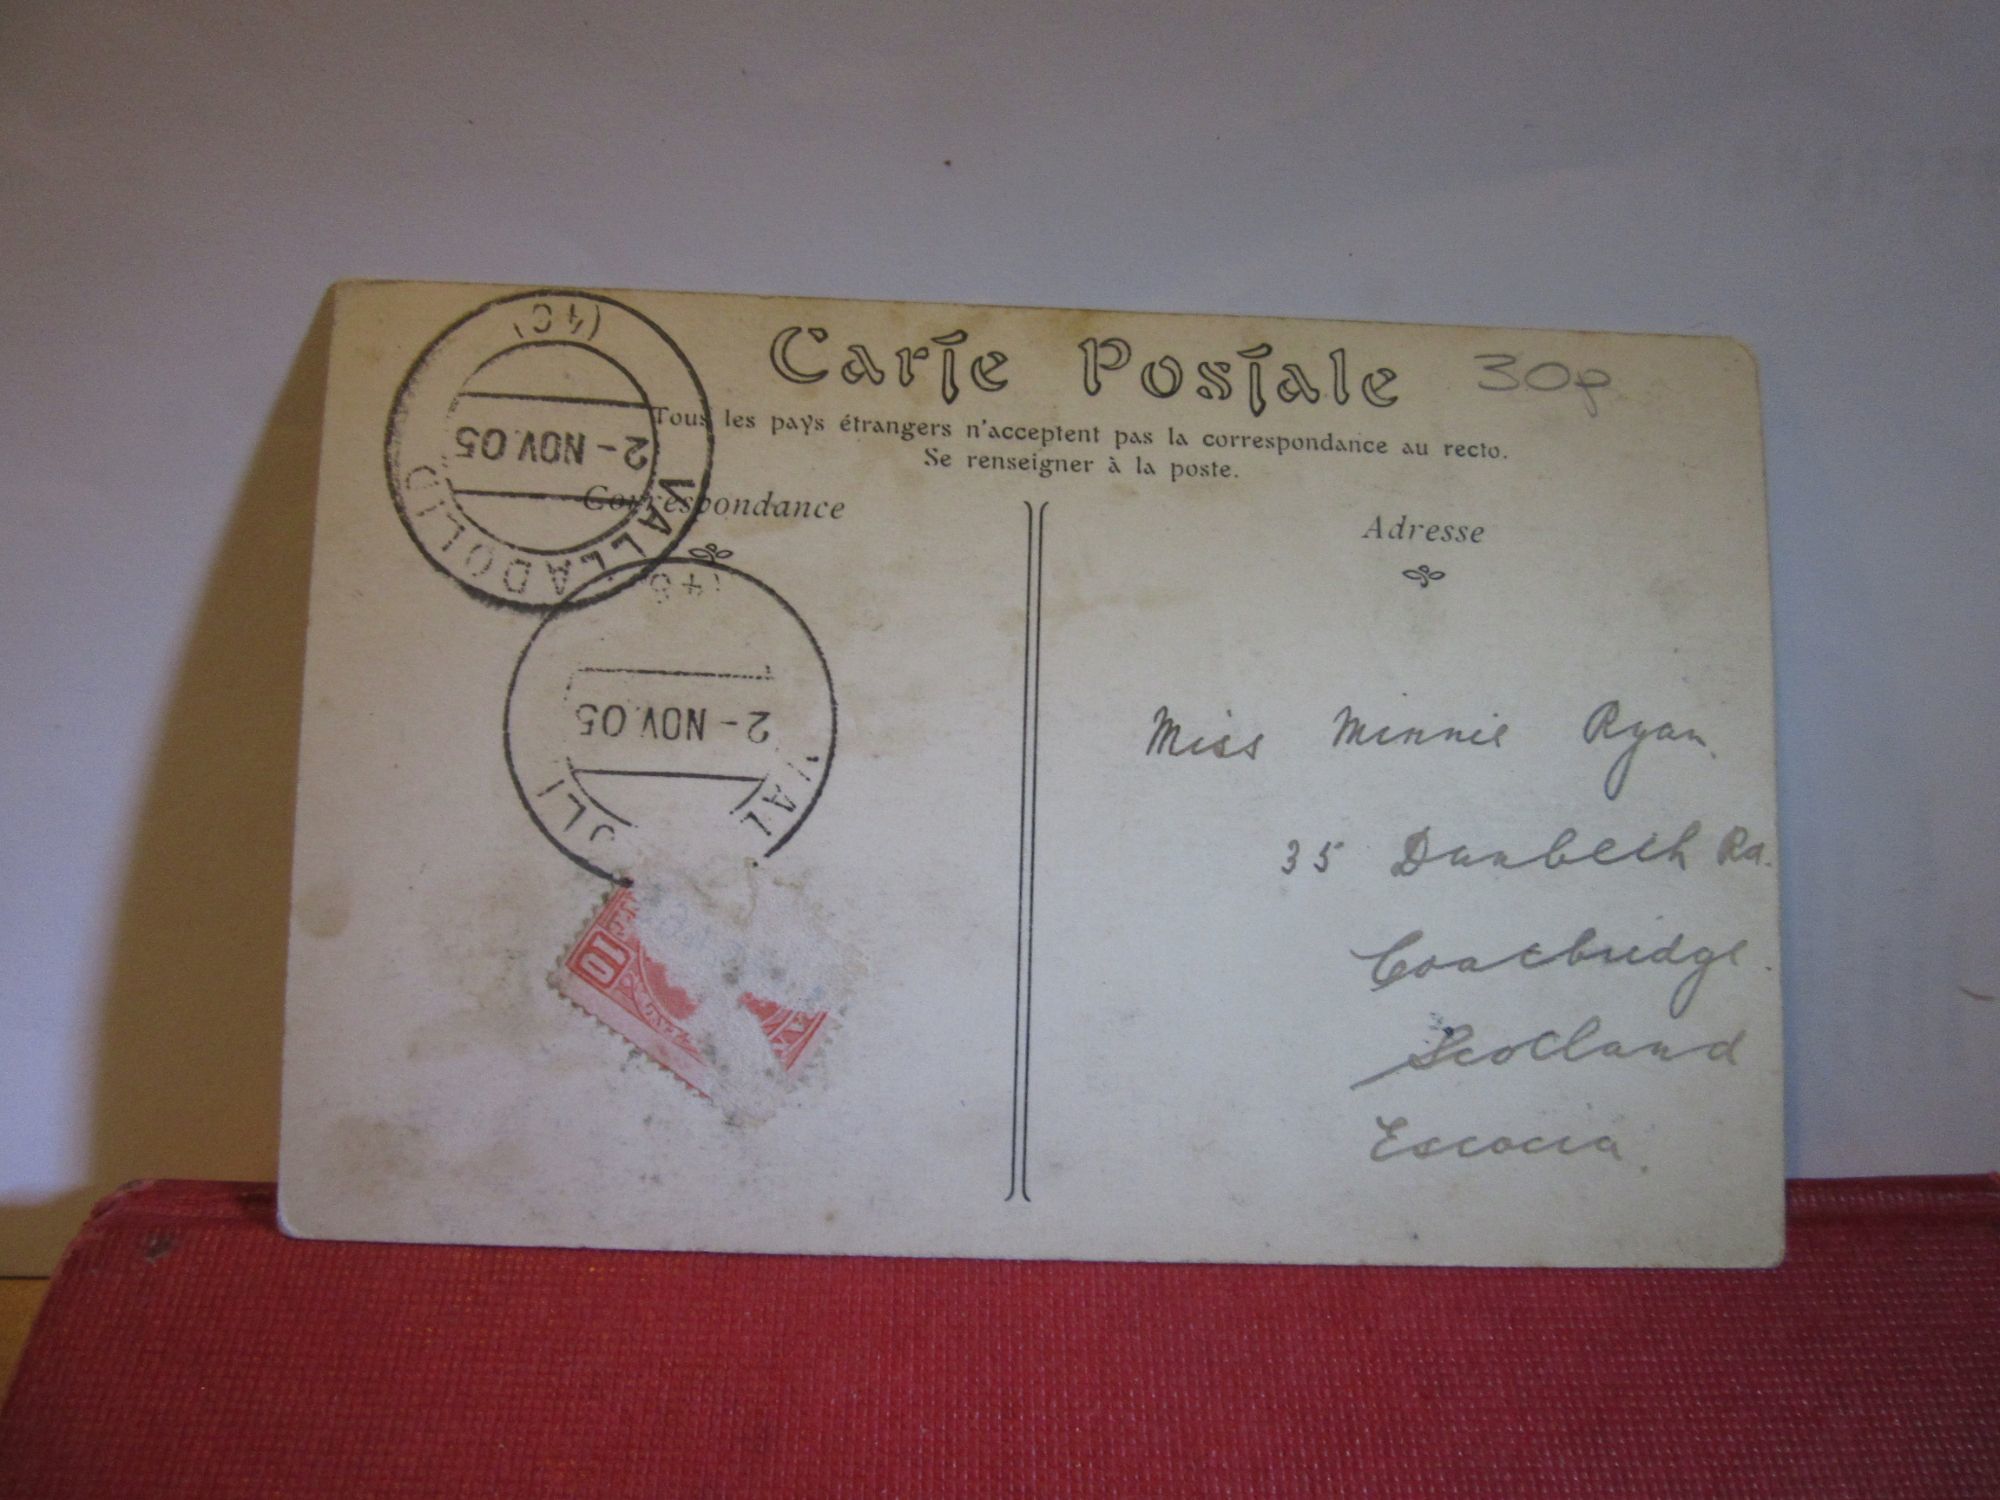 Carte Postale 30p
Tous les pays étrangers n'acceptent pas la correspondance au recto.
Se renseigner à la poste.
Correspondance
Adresse
VALLADOLID
2-NOV.05
2-NOV.05
10
Miss Minnie Ryan.
35 Dunbeth Rd.
Coatbridge.
Scotland
Escocia.